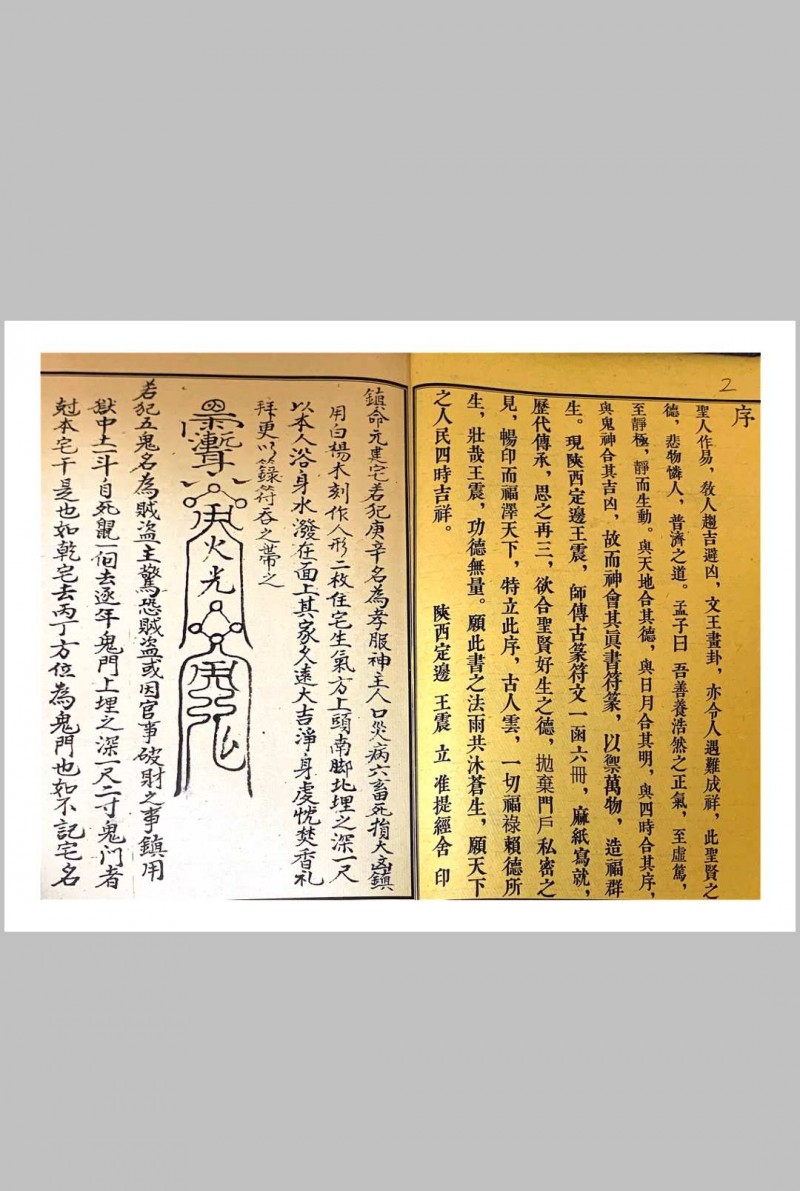 2
序
聖人作易，敎人趨吉避凶，文王畫卦，亦令人遇難成祥，此聖賢之
德，悲物憐人，普濟之道。孟子曰 吾善養浩然之正氣，至虛篤，
至靜極，靜而生動。與天地合其德，與日月合其明，與四時合其序，
與鬼神合其吉凶，故而神會其眞書符篆，以禦萬物，造福群
生。現陝西定邊王震，師傳古篆符文一函六冊，麻紙寫就，
歷代傳承，思之再三，欲合聖賢好生之德，拋棄門戶私密之
見，暢印而福澤天下，特立此序，古人雲，一切福祿賴德所
生，壯哉王震，功德無量。願此書之法雨共沐蒼生，願天下
之人民四時吉祥。
陝西定邊 王震 立 准提經舍 印
鎮命元建宅若犯庚辛名為孝服神主人口災病六畜死損大凶鎮
用白楊木刻作人形二枚住宅生氣方上頭南脚北埋之深一尺
以本人浴身水潑在面上其家久遠大吉淨身虔忱焚香礼
拜更以籙符吞之帶之
火光
若犯五鬼名為賊盜主驚恐賊盜或因官事破財之事鎮用
獄中土一斗自死鼠一個去逐年鬼門上埋之深一尺二寸鬼门者
尅本宅干是也如乾宅去丙丁方位為鬼門也如不記宅名